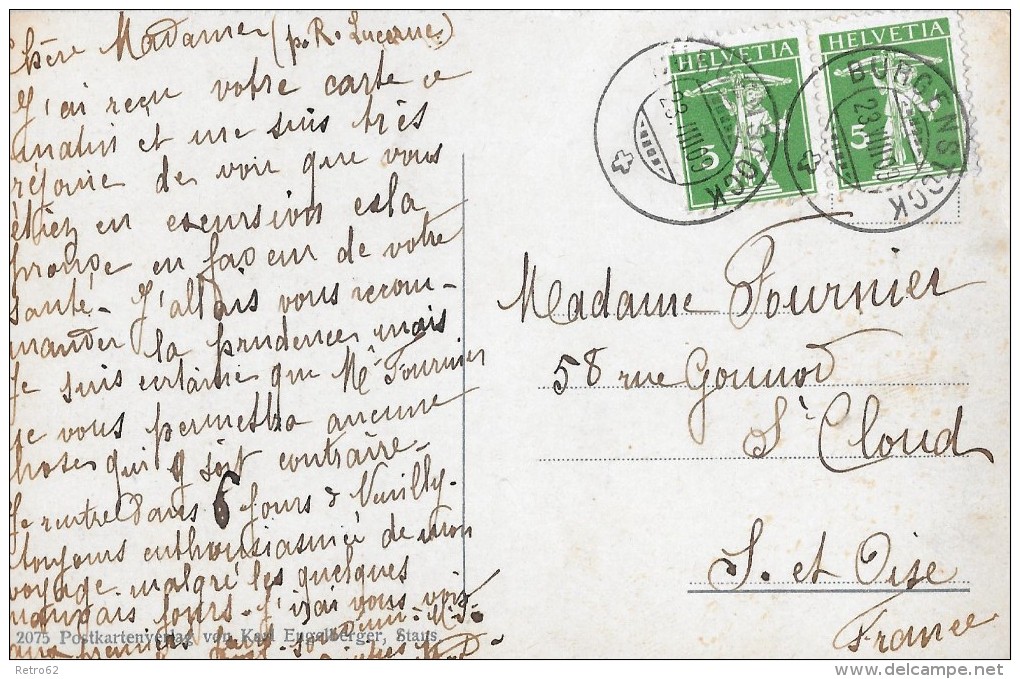 Chère Madame (p. R. Lucerne)
J'ai reçu votre carte ce
matin et me suis très
réjouie de voir que vous
étiez en excursion cela
prouve en faveur de votre
santé - J'allais vous recom-
mander la prudence, mais
je suis certaine que Mr Fournier
ne vous permettra aucune
chose qui y soit contraire -
Je rentre dans 6 jours à Neuilly -
toujours enthousiasmée de mon
voyage malgré les quelques
mauvais jours - J'irai vous voir
aux premiers
2075 Postkartenverlag von Karl Engelberger, Stans
HELVETIA
5
HELVETIA
5
BÜRGENSTOCK
23 VIII 09
BÜRGENSTOCK
23 VIII 09
Madame Fournier
58 rue Gounod
St Cloud
S. et Oise
France
Retro62
delcampe.net